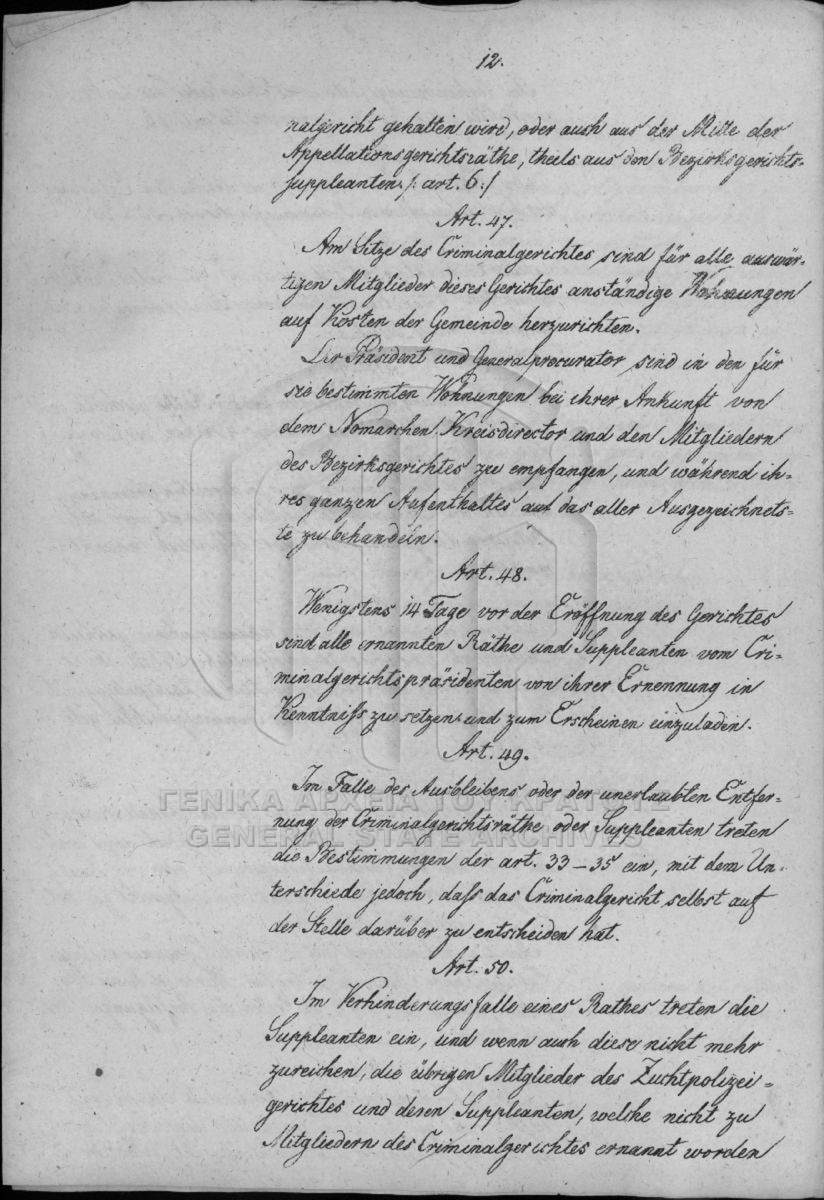 12.
nalgericht gehalten wird, oder auch aus der Mitte der
Appellationsgerichtsräthe, theils aus den Bezirksgerichts-
suppleanten. /: art. 6 :/
Art. 47.
Am Sitze des Criminalgerichtes sind für alle auswär-
tigen Mitglieder dieses Gerichtes anständige Wohnungen
auf Kosten der Gemeinde herzurichten.
Der Präsident und Generalprocurator sind in den für
sie bestimmten Wohnungen bei ihrer Ankunft von
dem Nomarchen, Kreisdirector und den Mitgliedern
des Bezirksgerichtes zu empfangen, und während ih-
res ganzen Aufenthaltes auf das aller Ausgezeichnets-
te zu behandeln.
Art. 48.
Wenigstens 14 Tage vor der Eröffnung des Gerichtes
sind alle ernannten Räthe und Suppleanten vom Cri-
minalgerichtspräsidenten von ihrer Ernennung in
Kenntniß zu setzen und zum Erscheinen einzuladen.
Art. 49.
Im Falle des Ausbleibens oder der unerlaubten Entfer-
nung der Criminalgerichtsräthe oder Suppleanten treten
die Bestimmungen der art. 33 – 35 ein, mit dem Un-
terschiede jedoch, daß das Criminalgericht selbst auf
der Stelle darüber zu entscheiden hat.
Art. 50.
Im Verhinderungsfalle eines Rathes treten die
Suppleanten ein, und wenn auch diese nicht mehr
zureichen, die übrigen Mitglieder des Zuchtpolizei-
gerichtes und deren Suppleanten, welche nicht zu
Mitgliedern des Criminalgerichtes ernannt worden
ΓΕΝΙΚΑ ΑΡΧΕΙΑ ΤΟΥ ΚΡΑΤΟΥΣ
GENERAL STATE ARCHIVES